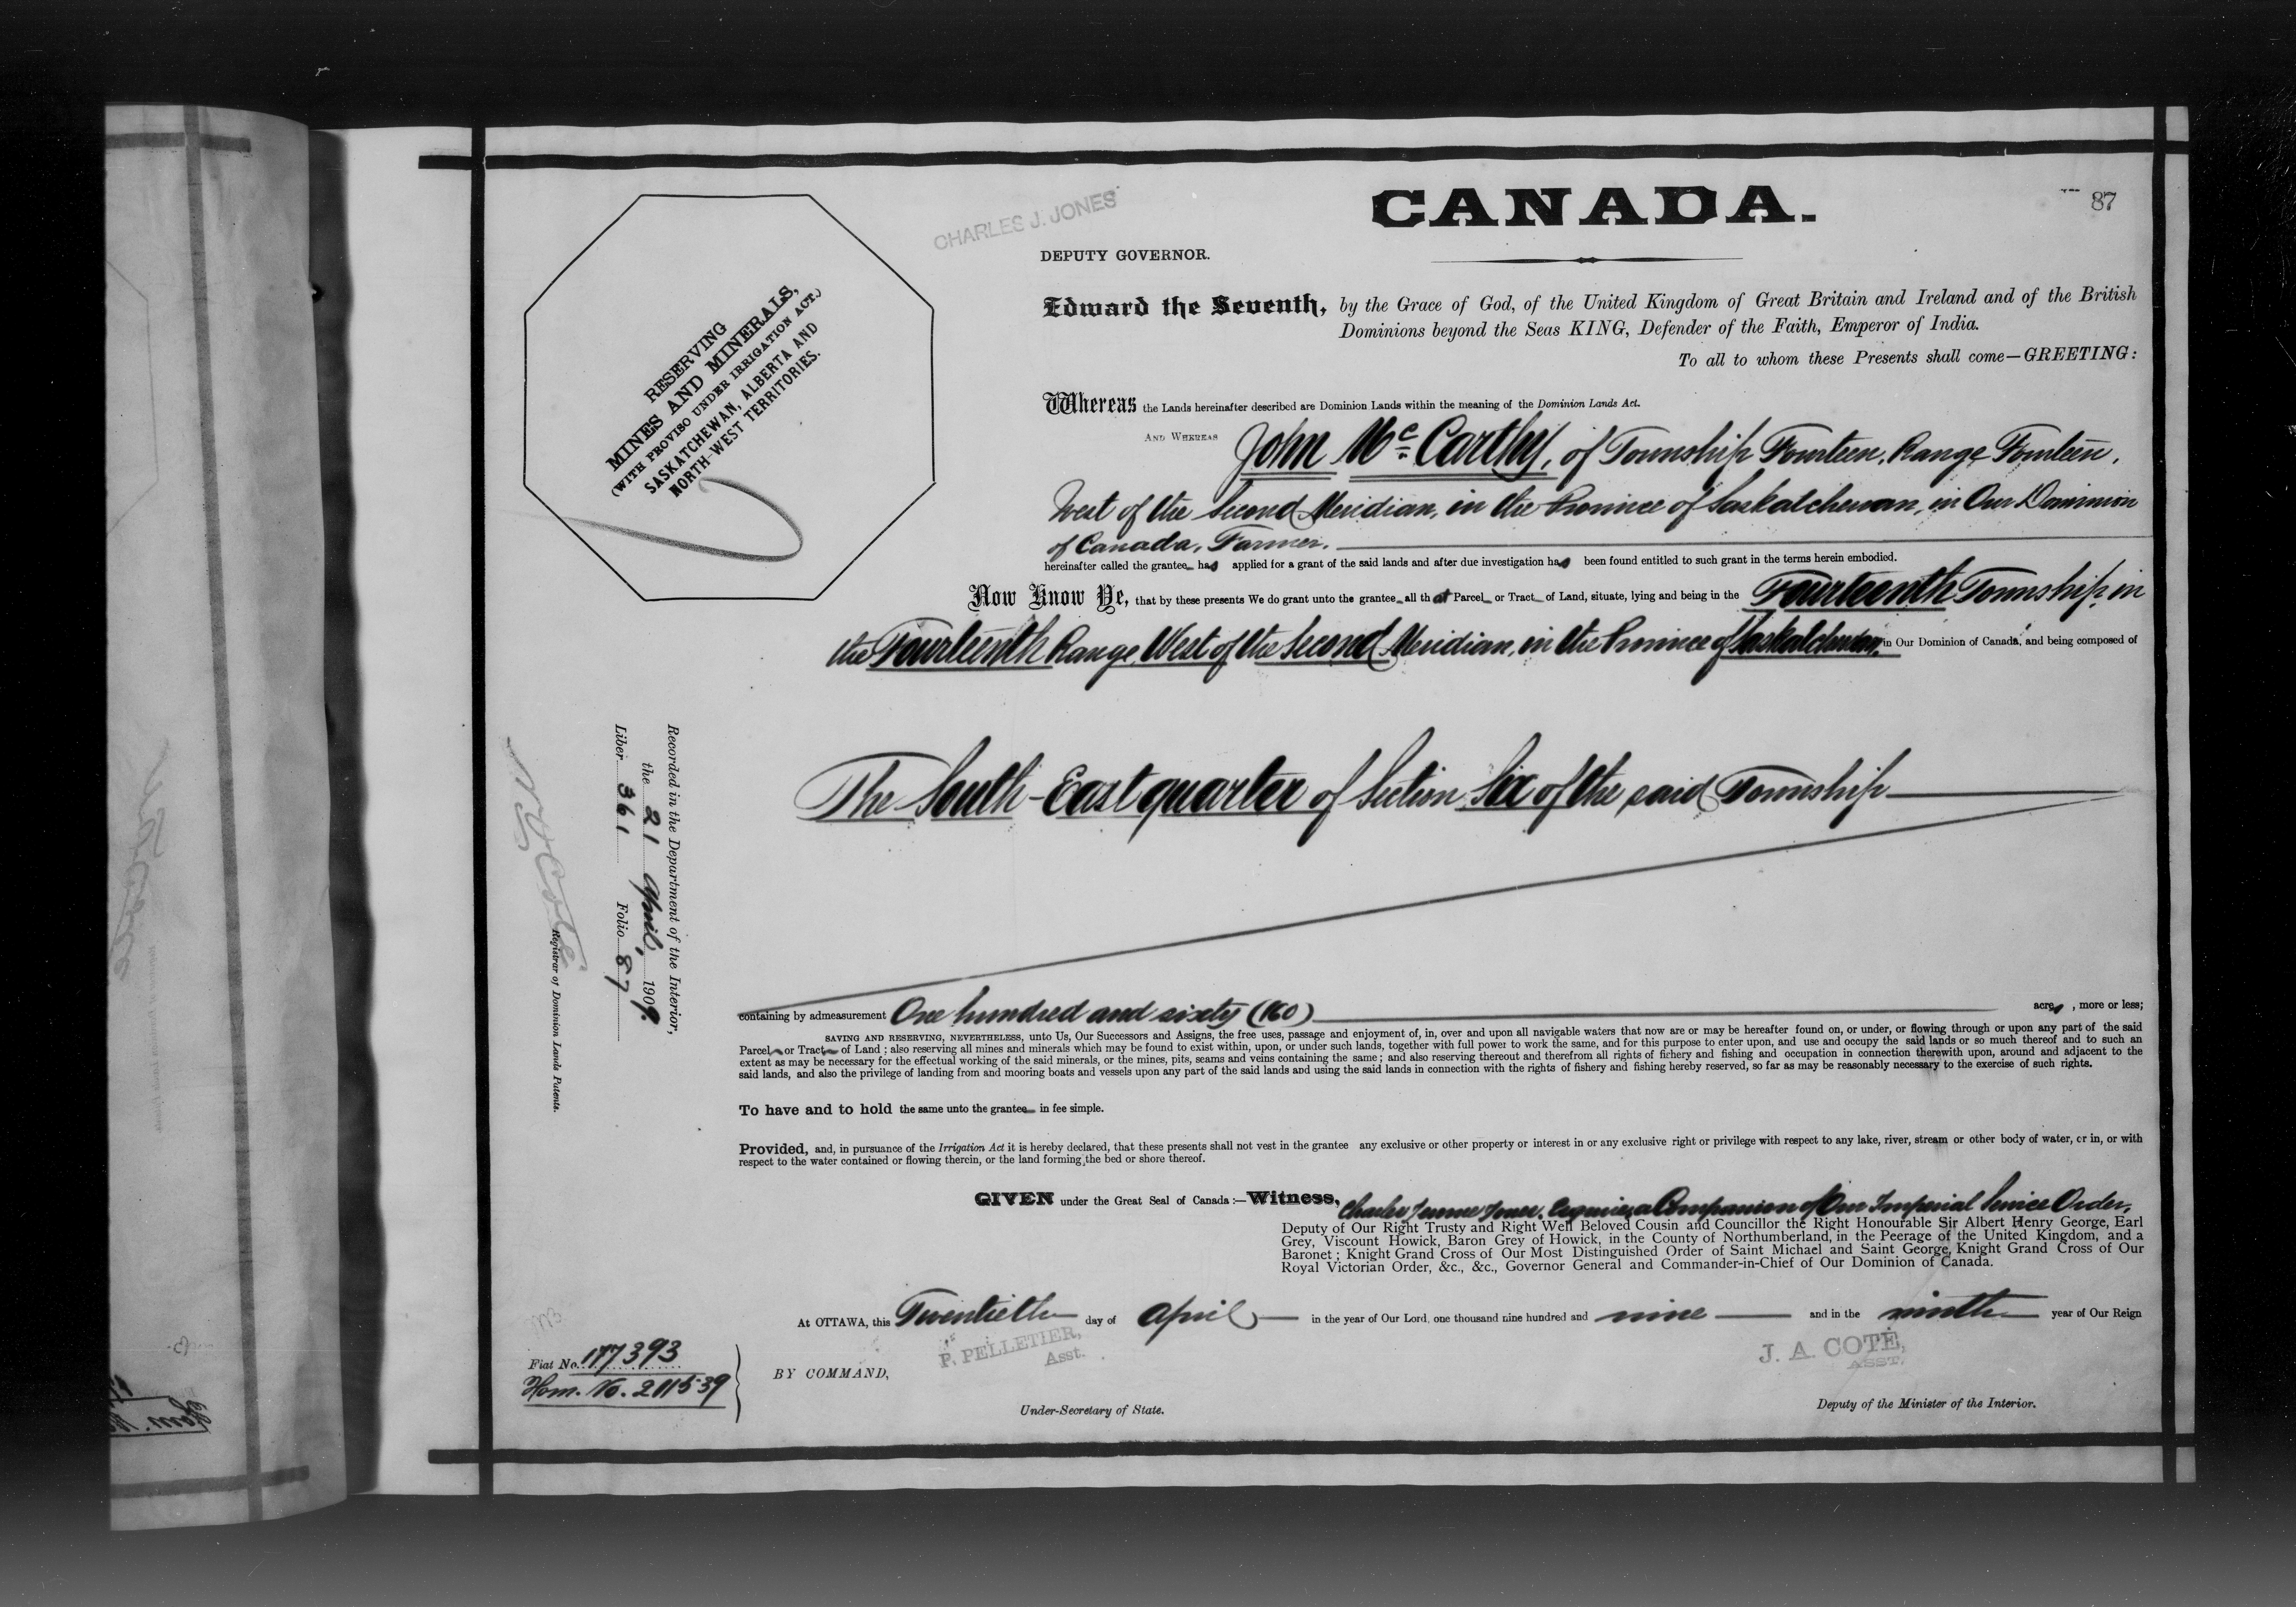 CANADA.
87
CHARLES J. JONES
DEPUTY GOVERNOR.
RESERVING
MINES AND MINERALS,
(WITH PROVISO UNDER IRRIGATION ACT.)
SASKATCHEWAN, ALBERTA AND
NORTH-WEST TERRITORIES.
Edward the Seventh, by the Grace of God, of the United Kingdom of Great Britain and Ireland and of the British
Dominions beyond the Seas KING, Defender of the Faith, Emperor of India.
To all to whom these Presents shall come—GREETING:
Whereas the Lands hereinafter described are Dominion Lands within the meaning of the Dominion Lands Act.
AND WHEREAS John Mc Carthy, of Township Fourteen, Range Fourteen,
West of the Second Meridian, in the Province of Saskatchewan, in Our Dominion
of Canada, Farmer.
hereinafter called the grantee has applied for a grant of the said lands and after due investigation has been found entitled to such grant in the terms herein embodied.
Now Know Ye, that by these presents We do grant unto the grantee all that Parcel or Tract of Land, situate, lying and being in the Fourteenth Township, in
the Fourteenth Range, West of the Second Meridian, in the Province of Saskatchewan, in Our Dominion of Canada, and being composed of
The South-East quarter of Section Six of the said Township
containing by admeasurement One hundred and sixty (160) acres, more or less;
SAVING AND RESERVING, NEVERTHELESS, unto Us, Our Successors and Assigns, the free uses, passage and enjoyment of, in, over and upon all navigable waters that now are or may be hereafter found on, or under, or flowing through or upon any part of the said
Parcel or Tract of Land; also reserving all mines and minerals which may be found to exist within, upon, or under such lands, together with full power to work the same, and for this purpose to enter upon, and use and occupy the said lands or so much thereof and to such an
extent as may be necessary for the effectual working of the said minerals, or the mines, pits, seams and veins containing the same; and also reserving thereout and therefrom all rights of fichery and fishing and occupation in connection therewith upon, around and adjacent to the
said lands, and also the privilege of landing from and mooring boats and vessels upon any part of the said lands and using the said lands in connection with the rights of fishery and fishing hereby reserved, so far as may be reasonably necessary to the exercise of such rights.
To have and to hold the same unto the grantee in fee simple.
Provided, and, in pursuance of the Irrigation Act it is hereby declared, that these presents shall not vest in the grantee any exclusive or other property or interest in or any exclusive right or privilege with respect to any lake, river, stream or other body of water, or in, or with
respect to the water contained or flowing therein, or the land forming the bed or shore thereof.
GIVEN under the Great Seal of Canada:—Witness, Charles Jones, Esquire, a Companion of Our Imperial Service Order,
Deputy of Our Right Trusty and Right Well Beloved Cousin and Councillor the Right Honourable Sir Albert Henry George, Earl
Grey, Viscount Howick, Baron Grey of Howick, in the County of Northumberland, in the Peerage of the United Kingdom, and a
Baronet; Knight Grand Cross of Our Most Distinguished Order of Saint Michael and Saint George, Knight Grand Cross of Our
Royal Victorian Order, &c., &c., Governor General and Commander-in-Chief of Our Dominion of Canada.
At OTTAWA, this Twentieth day of April in the year of Our Lord, one thousand nine hundred and nine and in the ninth year of Our Reign
P. PELLETIER,
Asst.
J. A. COTÉ,
ASST.
BY COMMAND,
Under-Secretary of State.
Deputy of the Minister of the Interior.
Fiat No. 177393
Hom. No. 211539
Recorded in the Department of the Interior,
the 21 April, 1909.
Liber 361 Folio 87
Registrar of Dominion Lands Patents.